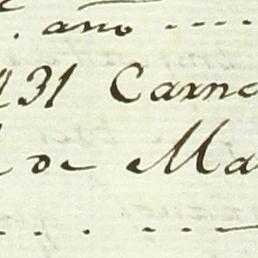 . año ----
31 Carne
de Ma